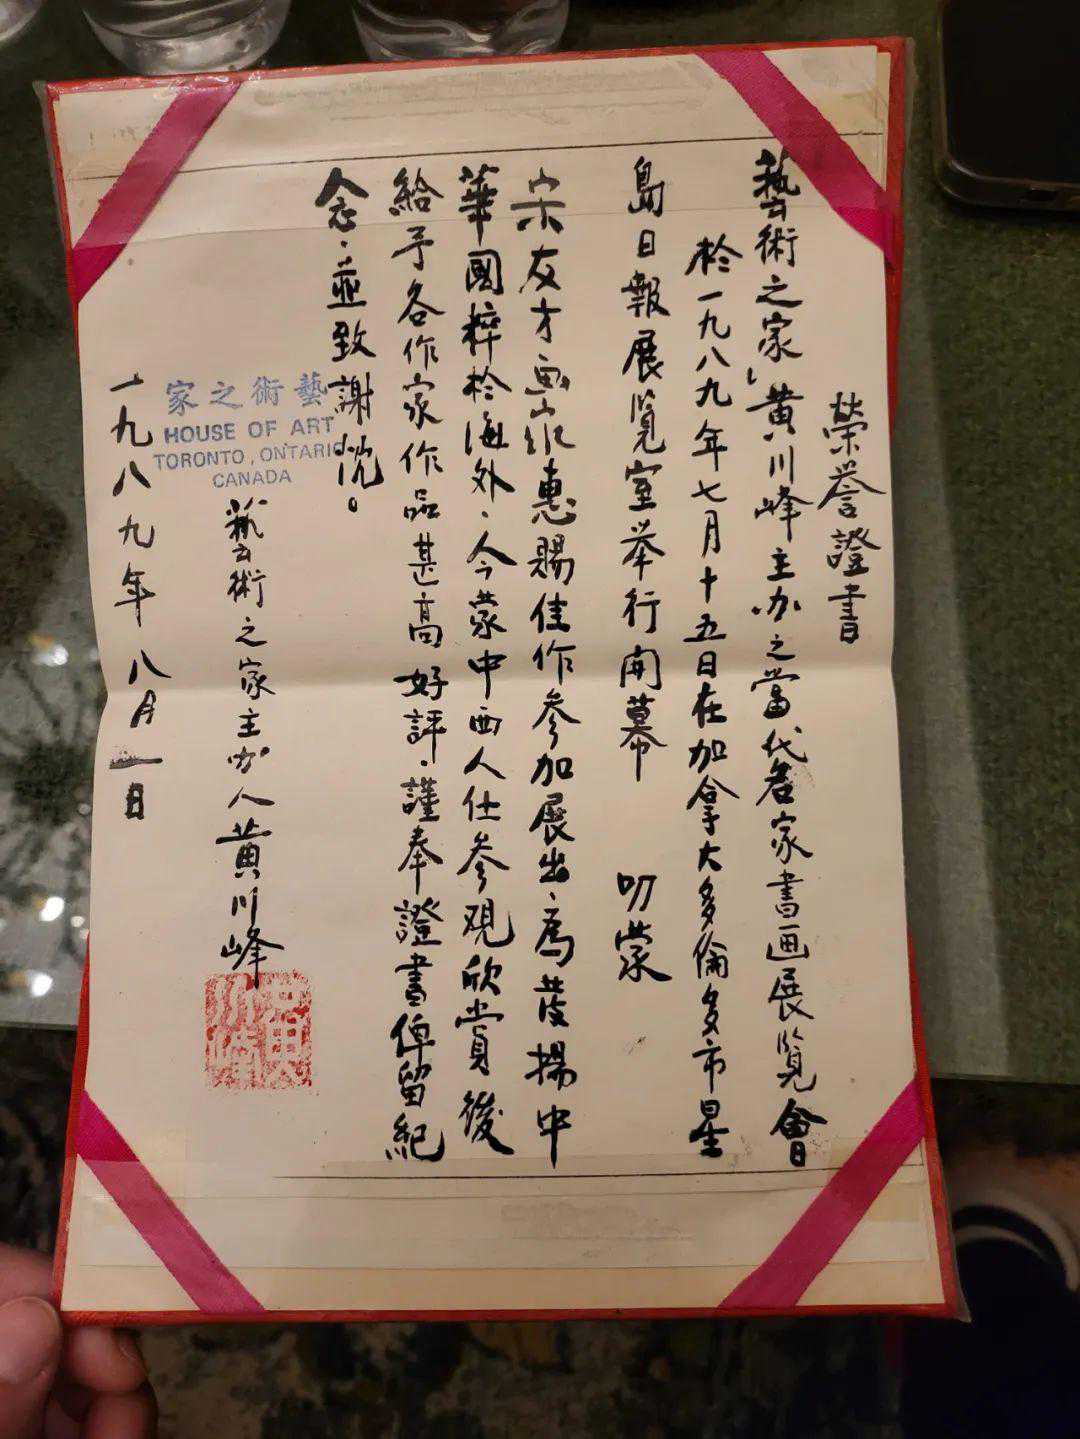 榮誉證書
藝術之家，黄川峰主办之當代名家書画展览會
於一九八九年七月十五日在加拿大多倫多市星
島日報展览室举行開幕　叨蒙
宋友才画家惠賜佳作參加展出，為發揚中
華國粹於海外，今蒙中西人仕參观欣賞後
給予各作家作品甚高好評，謹奉證書俾留紀
念，並致謝忱。
家之術藝
HOUSE OF ART
TORONTO, ONTARIO
CANADA
藝術之家主办人黄川峰
一九八九年八月一日